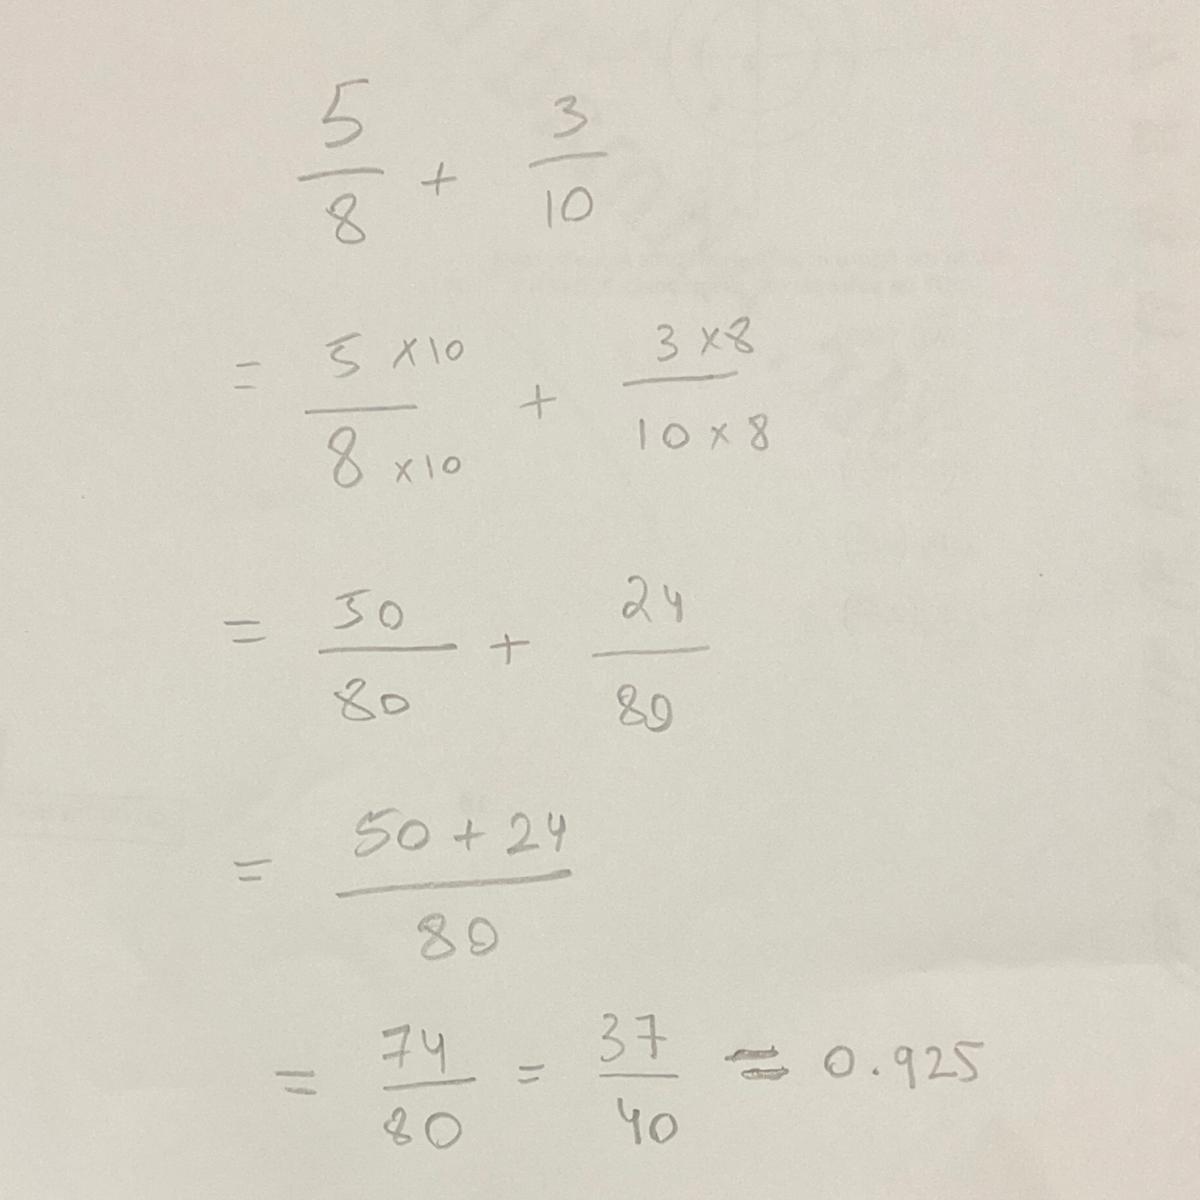 5/8 + 3/10
= 5 × 10 / 8 × 10 + 3 × 8 / 10 × 8
= 50/80 + 24/80
= 50 + 24 / 80
= 74/80 = 37/40 = 0.925